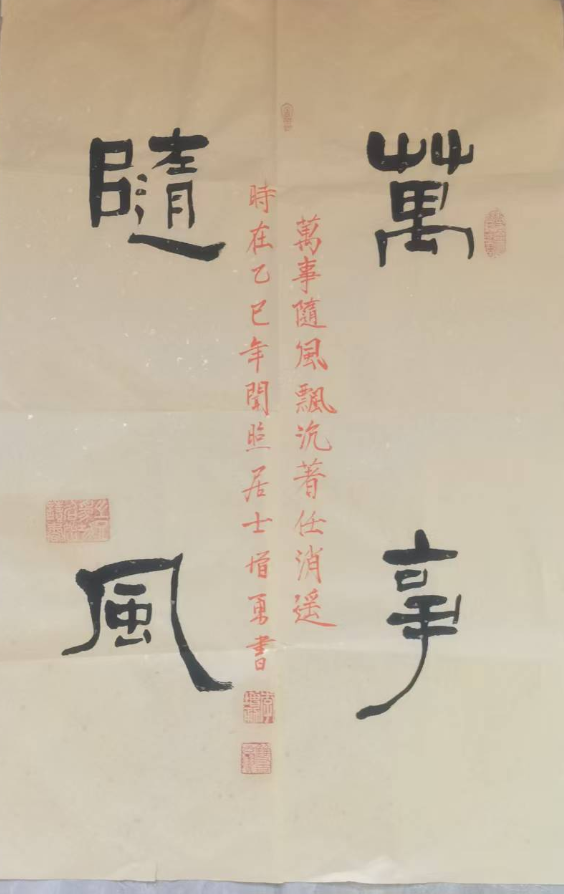 萬事
隨風
萬事隨風飄沉著任消遥
時在乙巳年開照居士增勇書